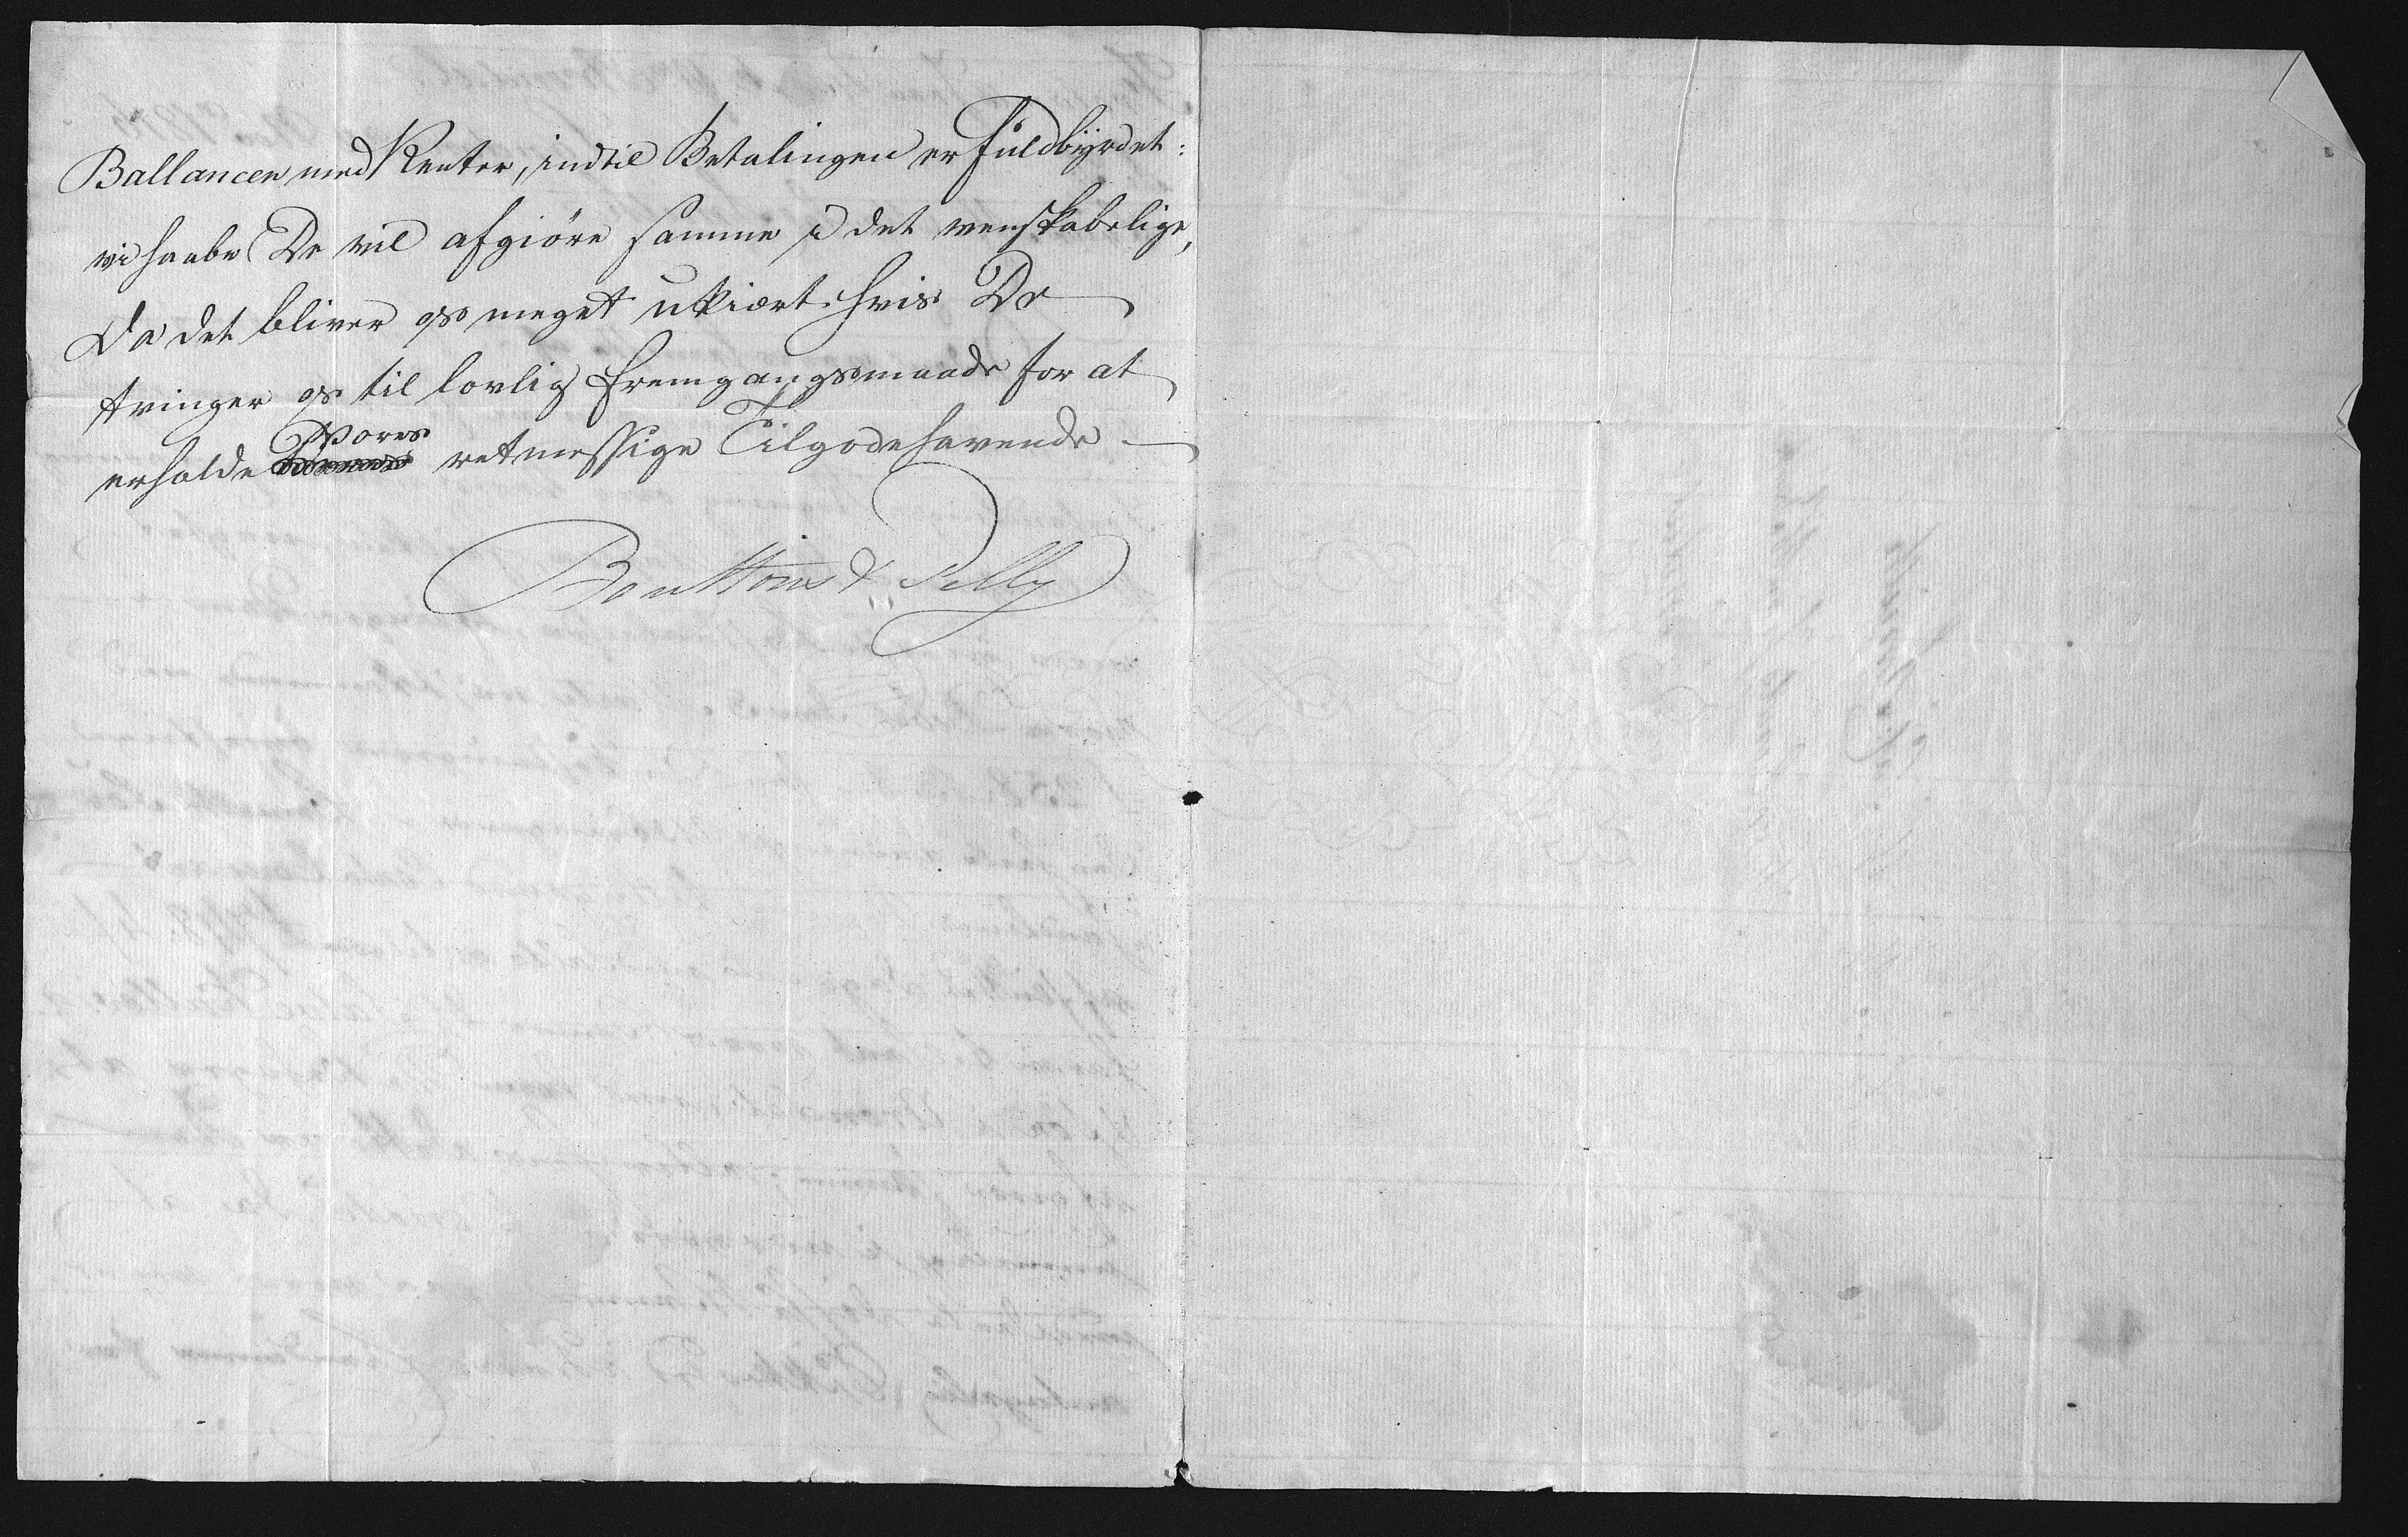 Ballancen med Renter, indtil Betalingen er Fuldbyrdet:
vi haabe De vil afgiöre samme i det venskabelige,
Da det bliver os meget ukiært hvis De
tvinger os til lovlig Fremgangsmaade for at
erholde Vores retmessige Tilgodehavende —
Bouttons & Pelly